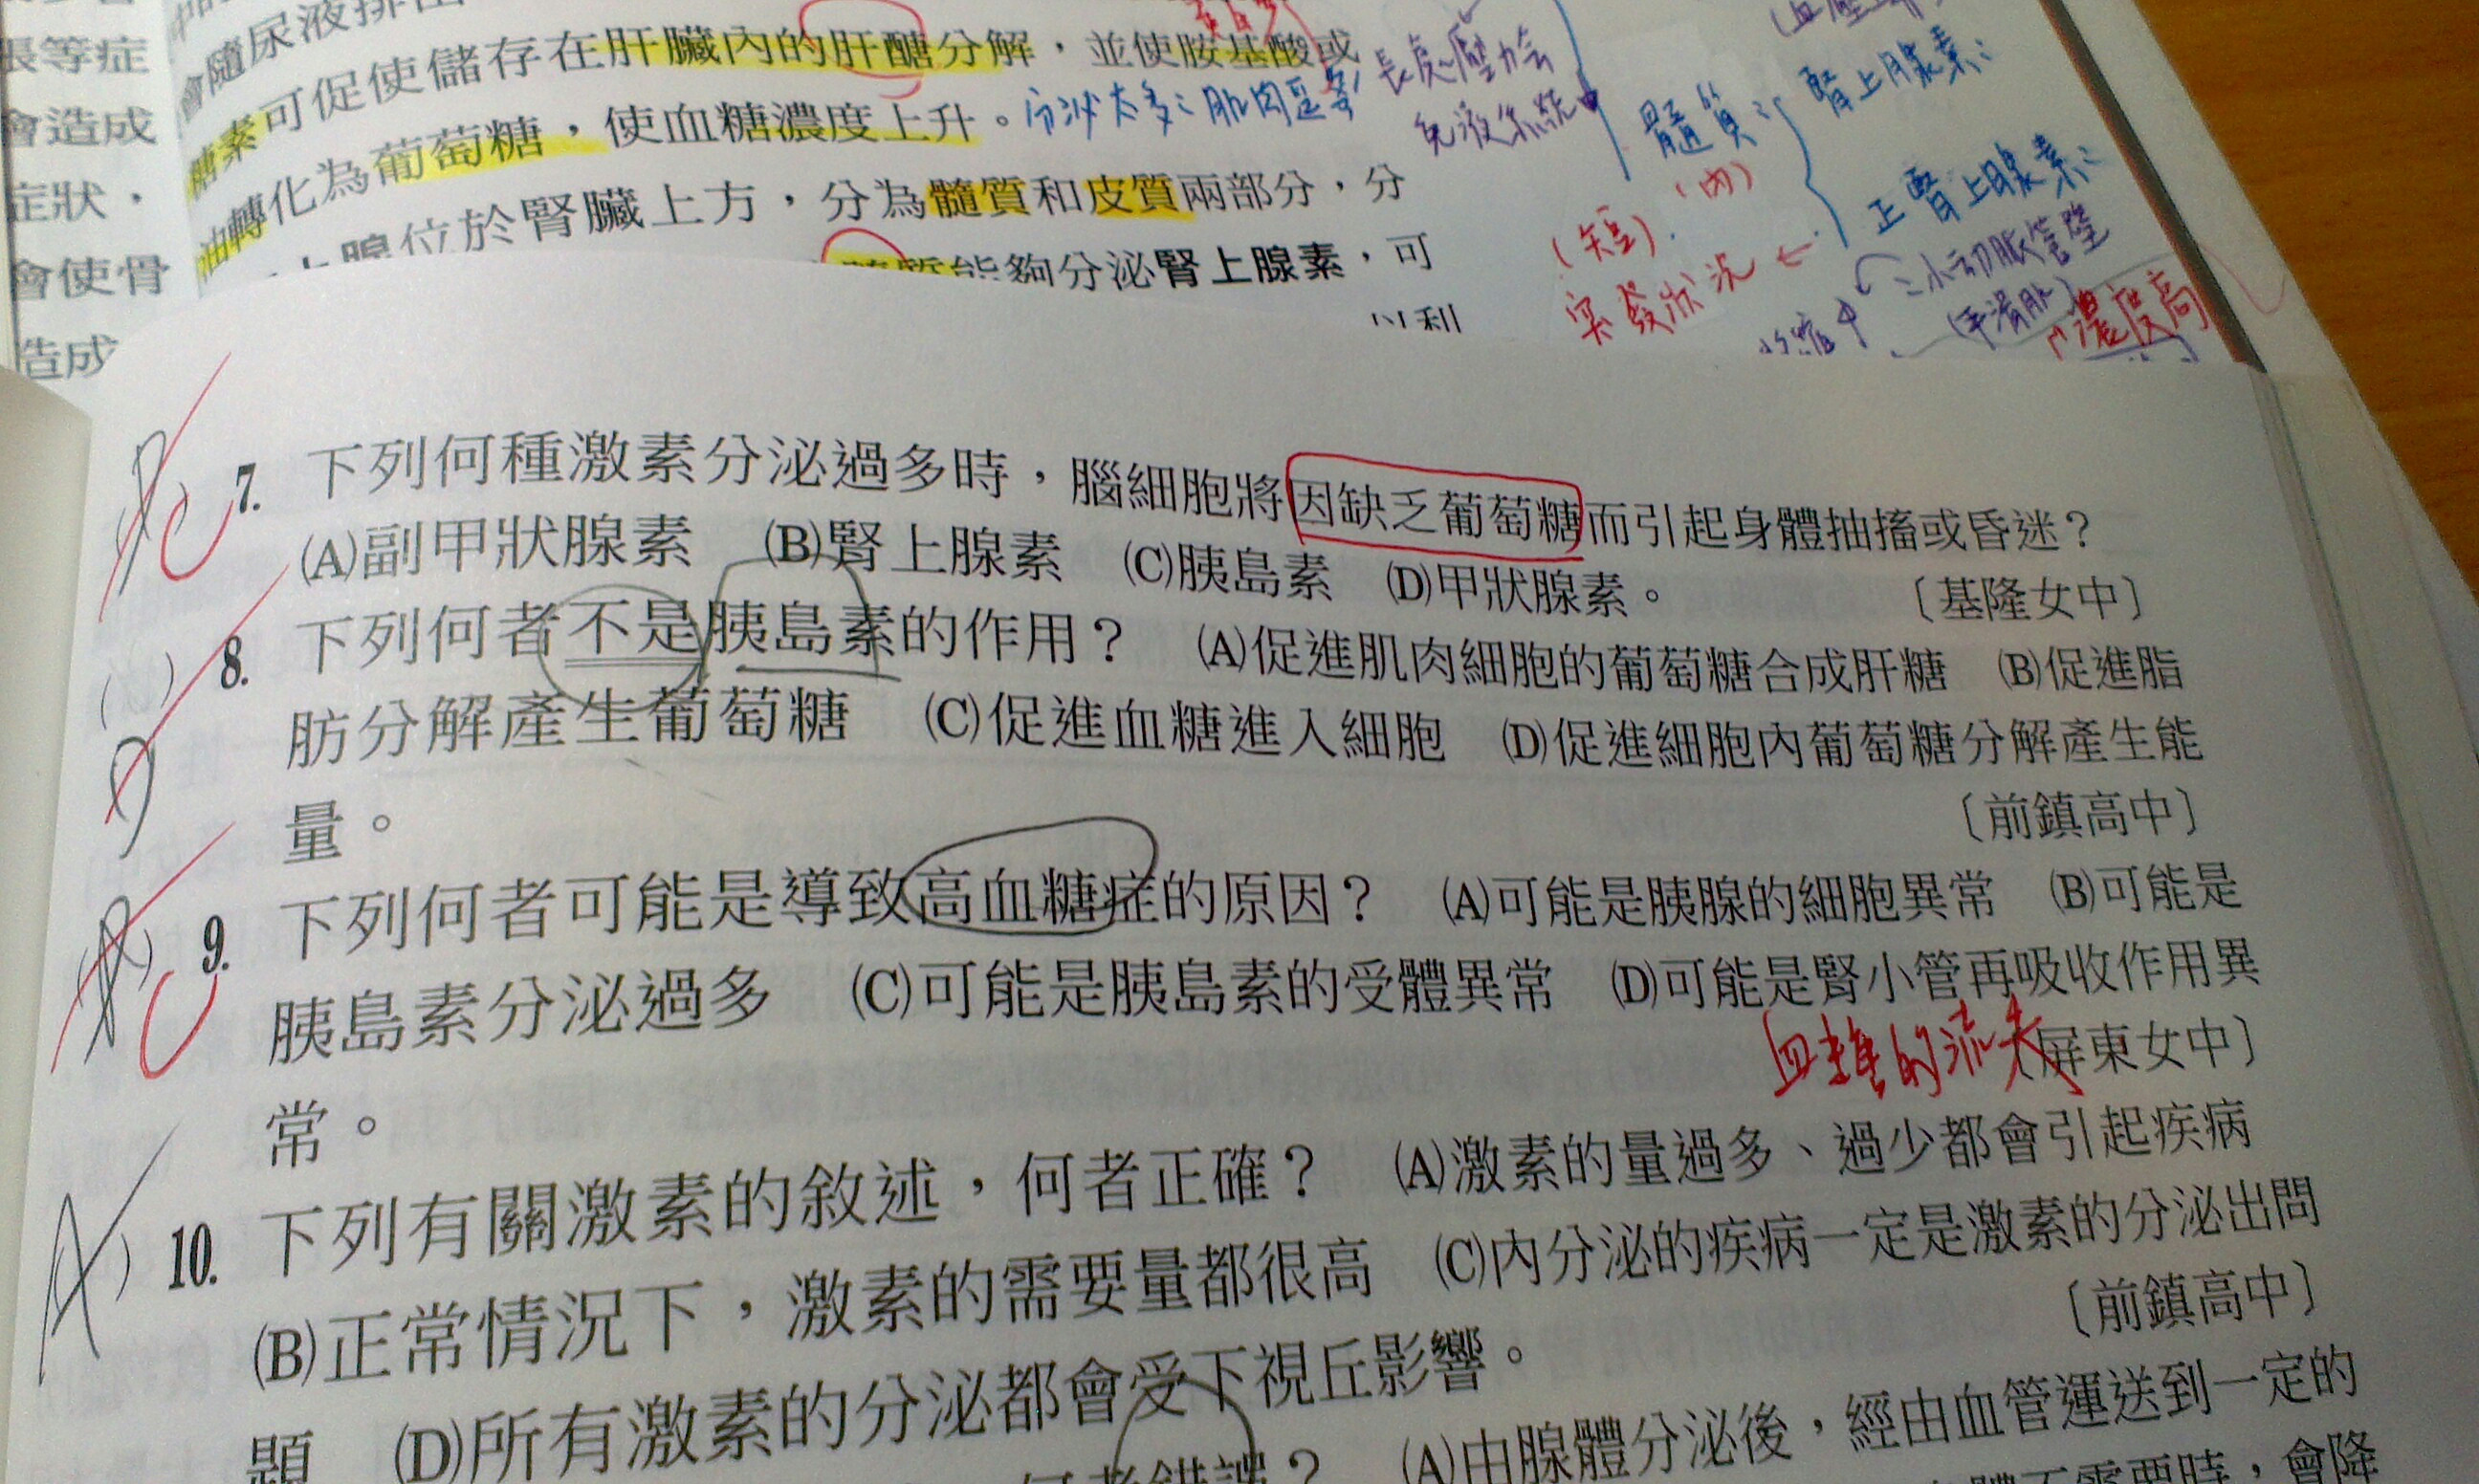 長等症
會造成
症狀，
會使骨
造成
會隨尿液排出
糖素可促使儲存在肝臟內的肝醣分解，並使胺基酸或
油轉化為葡萄糖，使血糖濃度上升。
上腺位於腎臟上方，分為髓質和皮質兩部分，分
能夠分泌腎上腺素，可
以利
分泌太多：肌肉萎縮
長處壓力會
免液系統
髓質
(內)
腎上腺素：
正腎上腺素：
小動脈管壁
(平滑肌)
(短)
突發狀況
收縮
濃度高
C 7. 下列何種激素分泌過多時，腦細胞將因缺乏葡萄糖而引起身體抽搐或昏迷？
(A)副甲狀腺素 (B)腎上腺素 (C)胰島素 (D)甲狀腺素。 〔基隆女中〕
( ) 8. 下列何者不是胰島素的作用？ (A)促進肌肉細胞的葡萄糖合成肝糖 (B)促進脂
肪分解產生葡萄糖 (C)促進血糖進入細胞 (D)促進細胞內葡萄糖分解產生能
量。 〔前鎮高中〕
C 9. 下列何者可能是導致高血糖症的原因？ (A)可能是胰腺的細胞異常 (B)可能是
胰島素分泌過多 (C)可能是胰島素的受體異常 (D)可能是腎小管再吸收作用異
常。 〔屏東女中〕
的流失
(A) 10. 下列有關激素的敘述，何者正確？ (A)激素的量過多、過少都會引起疾病
(B)正常情況下，激素的需要量都很高 (C)內分泌的疾病一定是激素的分泌出問
題 (D)所有激素的分泌都會受下視丘影響。 〔前鎮高中〕
何者錯誤？ (A)由腺體分泌後，經由血管運送到一定的
體不需要時，會降